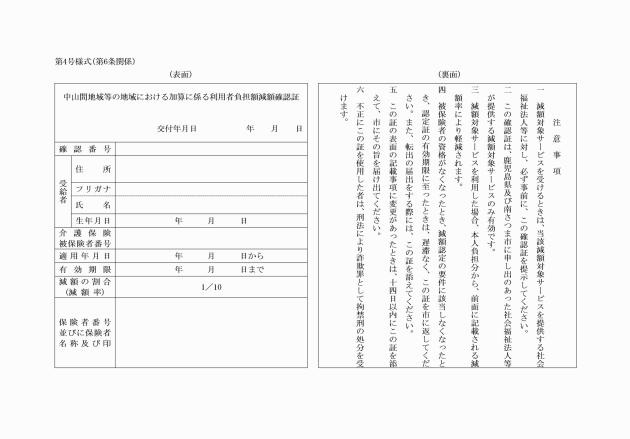 第4号様式(第6条関係)
(表面)
中山間地域等の地域における加算に係る利用者負担額減額確認証
交付年月日　年　月　日
確認番号
受給者
住所
フリガナ
氏名
生年月日　年　月　日
介護保険
被保険者番号
適用年月日　年　月　日から
有効期限　年　月　日まで
減額の割合
(減額率)
1／10
保険者番号
並びに保険者
名称及び印
(裏面)
注意事項
一　減額対象サービスを受けるときは、当該減額対象サービスを提供する社会
福祉法人等に対し、必ず事前に、この確認証を提示してください。
二　この確認証は、鹿児島県及び南さつま市に申し出のあった社会福祉法人等
が提供する減額対象サービスのみ有効です。
三　減額対象サービスを利用した場合、本人負担分から、前面に記載される減
額率により軽減されます。
四　被保険者の資格がなくなったとき、減額認定の要件に該当しなくなったと
き、認定証の有効期限に至ったときは、遅滞なく、この証を市に返してくだ
さい。また、転出の届出をする際には、この証を添えてください。
五　この証の表面の記載事項に変更があったときは、十四日以内にこの証を添
えて、市にその旨を届け出てください。
六　不正にこの証を使用した者は、刑法により詐欺罪として拘禁刑の処分を受
けます。